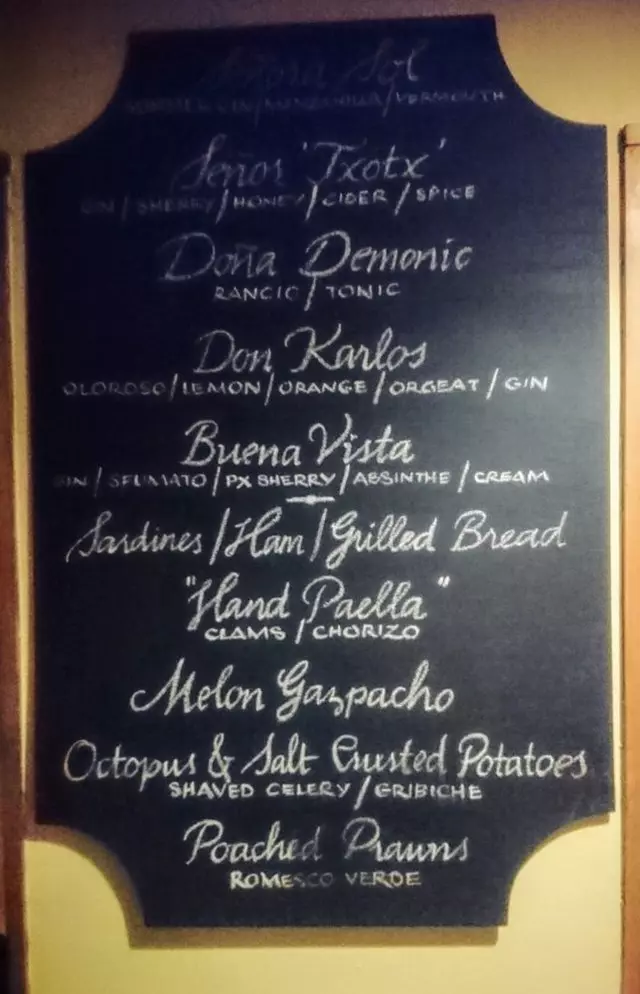 Señora Sol
GIN / MANZANILLA / VERMOUTH
Señor 'Txotx'
GIN / SHERRY / HONEY / CIDER / SPICE
Doña Demonic
RANCIO / TONIC
Don Karlos
OLOROSO / LEMON / ORANGE / ORGEAT / GIN
Buena Vista
GIN / SFUMATO / PX SHERRY / ABSINTHE / CREAM
Sardines / Ham / Grilled Bread
"Hand Paella"
CLAMS / CHORIZO
Melon Gazpacho
Octopus & Salt Crusted Potatoes
SHAVED CELERY / GRIBICHE
Poached Prawns
ROMESCO VERDE